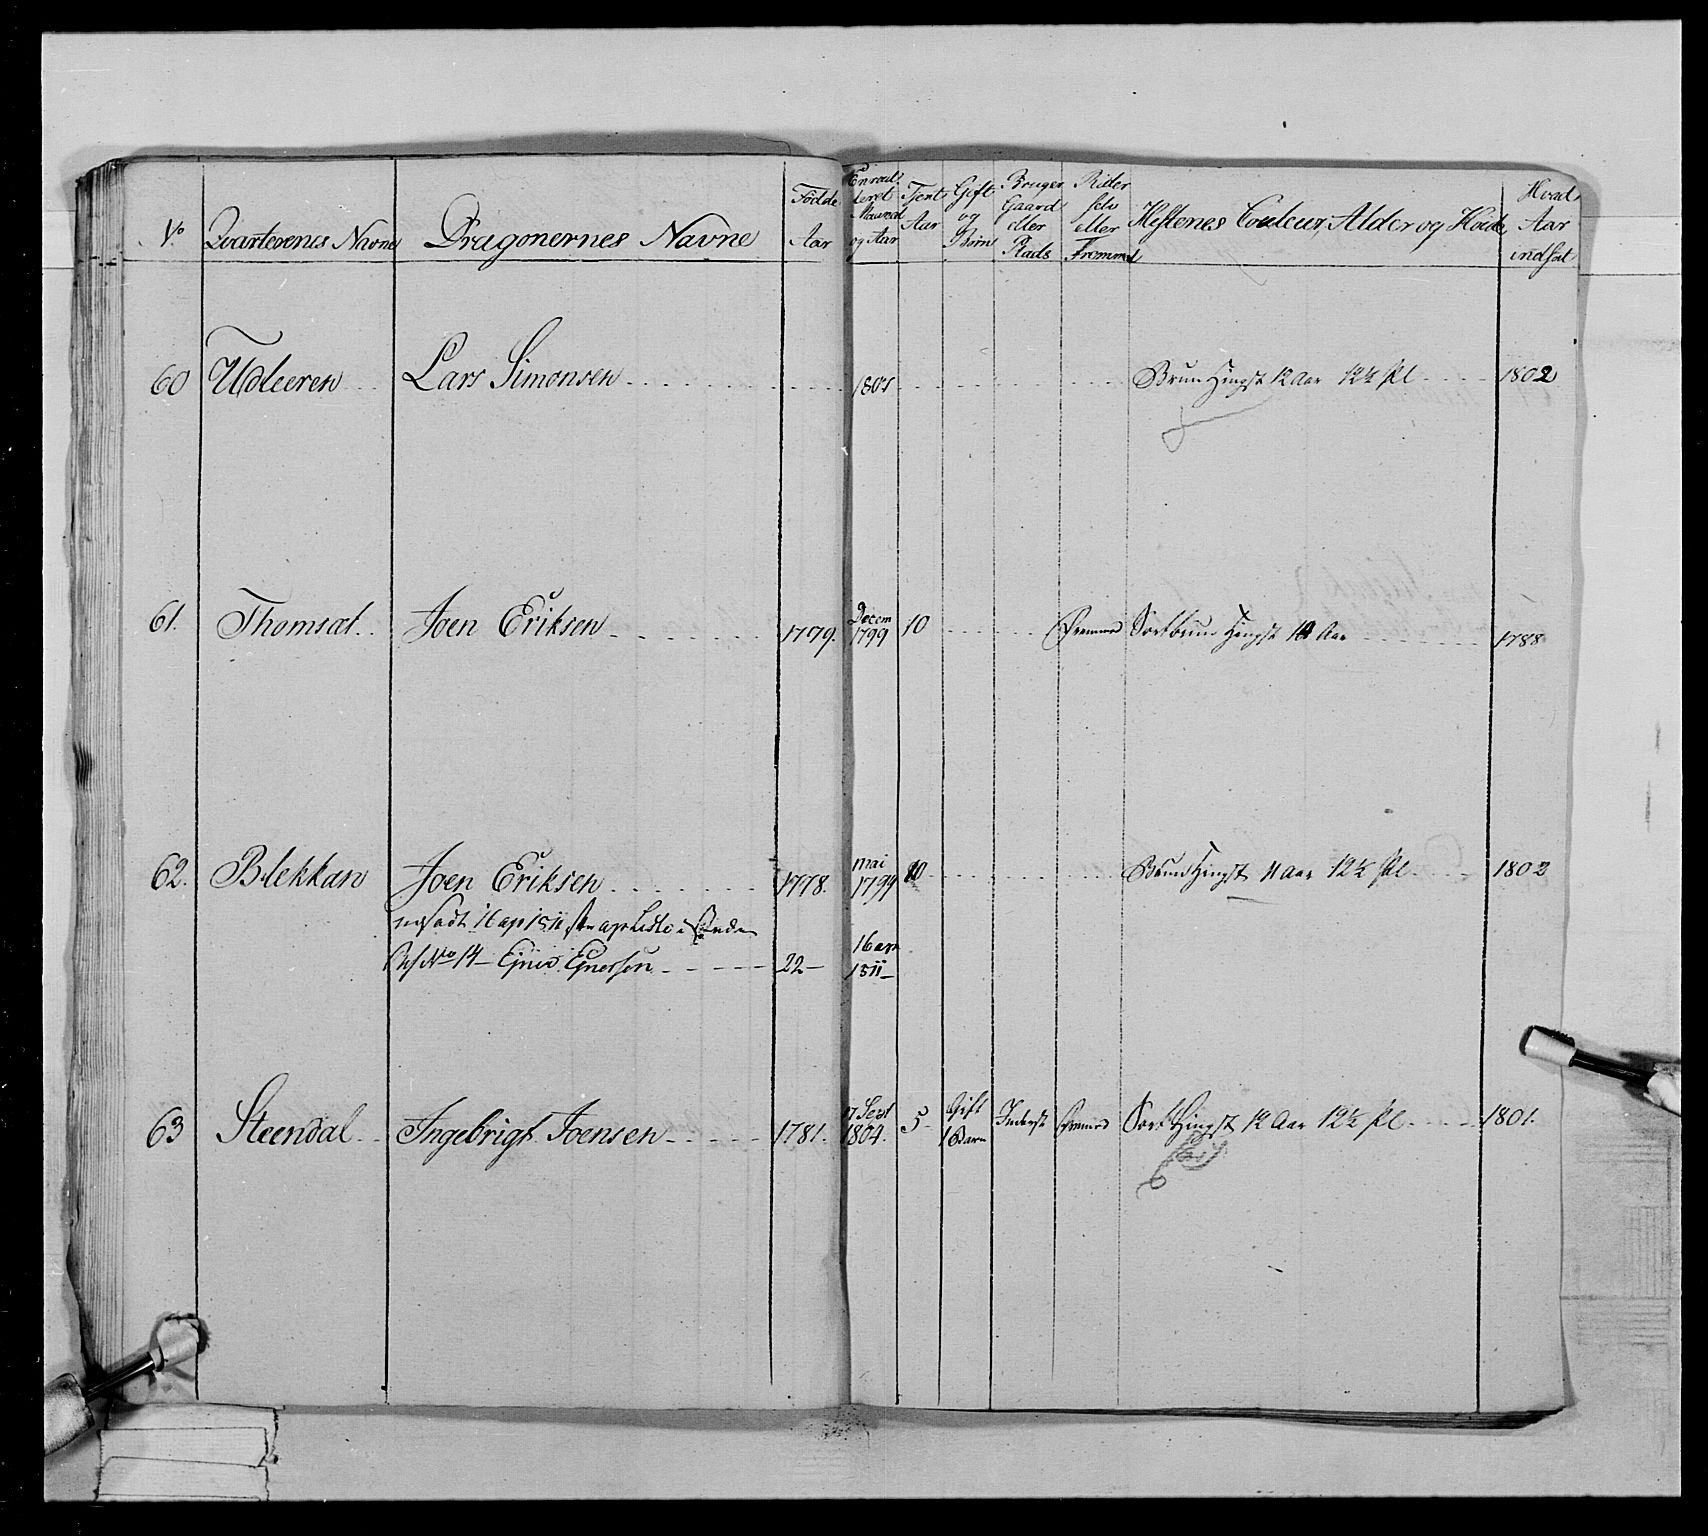 No. Qvarterenes Navne Dragonernes Navne Födde Aar Enroulleret Maaned og Aar Tjent Aar Gift og Börn Bruger Gaard eller Plads Rider selv eller Fremmed Hestenes Couleur, Alder og Höide Hvad Aar indsat
60 Udleeren Lars Simonsen 1801 Brun Hingst 12 Aar 12½ Qvl 1802
61. Thomsæt Joen Eriksen 1779. Decem 1799 10 Fremmed Sortbrun Hingst 12 Aar 1788
62. Blekkan Joen Eriksen 1778. mai 1799 10 Brun Hingst 11 Aar 12½ Qvl 1802
16 ap 1811
No 14 - Ejner Ejnersen 22 - 16 apr 1811 -
63 Steendal Ingebrigt Joensen 1781. 17 Sept 1804. 5 Gift 1 Barn Inderst Fremmed Sort Hingst 12 Aar 12½ Qvl 1801.